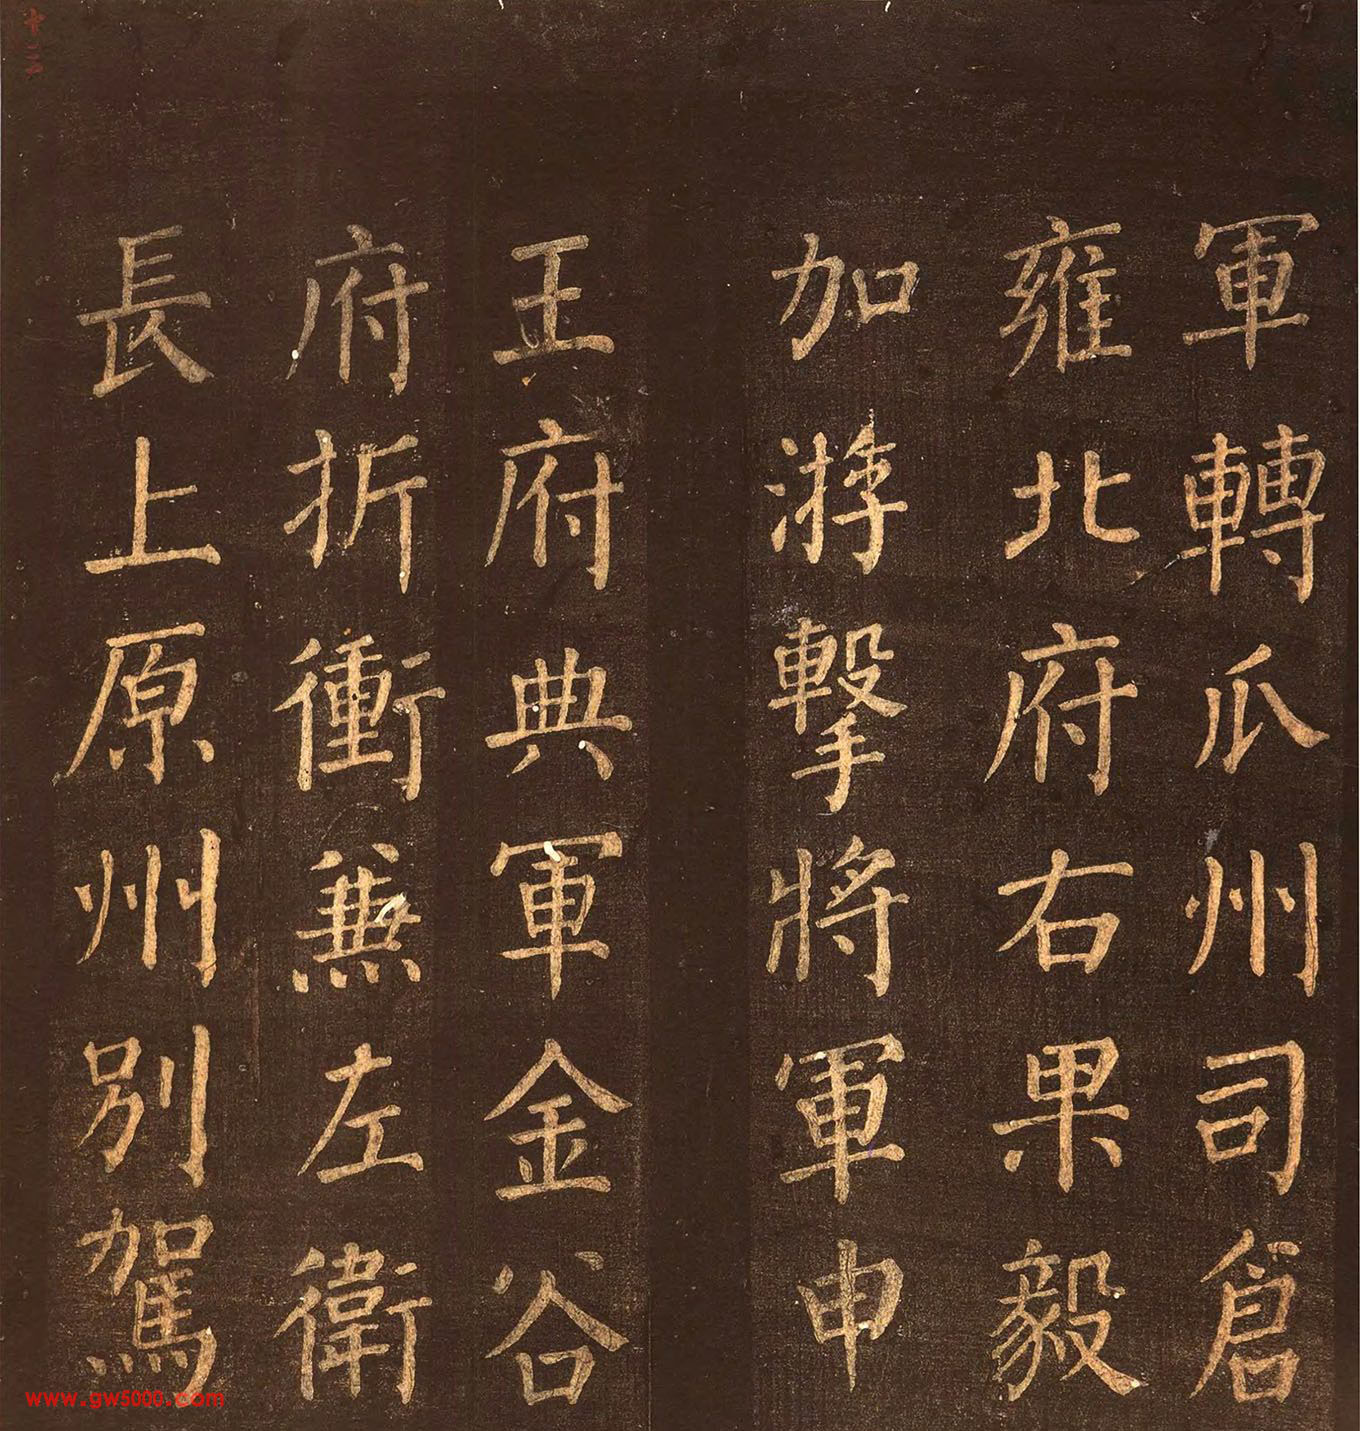 軍轉瓜州司倉
雍北府右果毅
加游擊將軍申
王府典軍金谷
府折衝兼左衛
長上原州別駕
www.gw5000.com